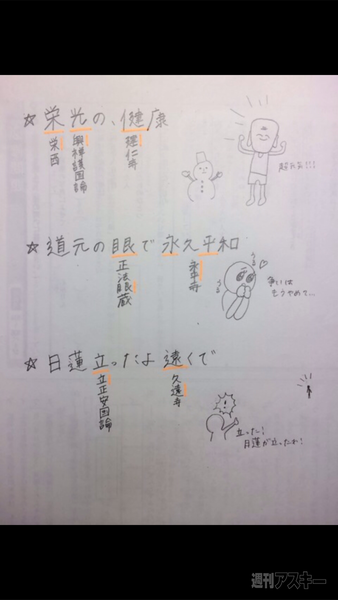 ☆栄光の、健康
栄西
興禅護国論
建仁寺
超元気!!!
☆道元の眼で永久平和
正法眼蔵
永平寺
争いは
もうやめて…
☆日蓮立ったよ遠くで
立正安国論
久遠寺
立った!
日蓮が立ったわ!
週刊アスキー